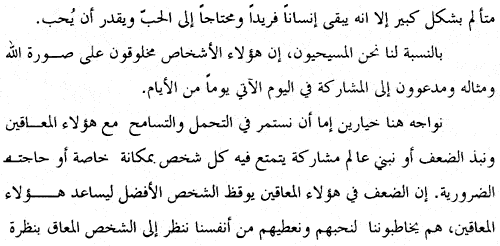 متألم بشكل كبير إلا انه يبقى إنساناً فريداً ومحتاجاً إلى الحبّ ويقدر أن يُحب.
بالنسبة لنا نحن المسيحيون، إن هؤلاء الأشخاص مخلوقون على صورة الله
ومثاله ومدعوون إلى المشاركة في اليوم الآتي يوماً من الأيام.
نواجه هنا خيارين إما أن نستمر في التحمل والتسامح مع هؤلاء المعاقين
ونبذ الضعف أو نبني عالم مشاركة يتمتع فيه كل شخص بمكانة خاصة أو حاجته
الضرورية. إن الضعف في هؤلاء المعاقين يوقظ الشخص الأفضل ليساعد هؤلاء
المعاقين، هم يخاطبوننا لنحبهم ونعطيهم من أنفسنا ننظر إلى الشخص المعاق بنظرة